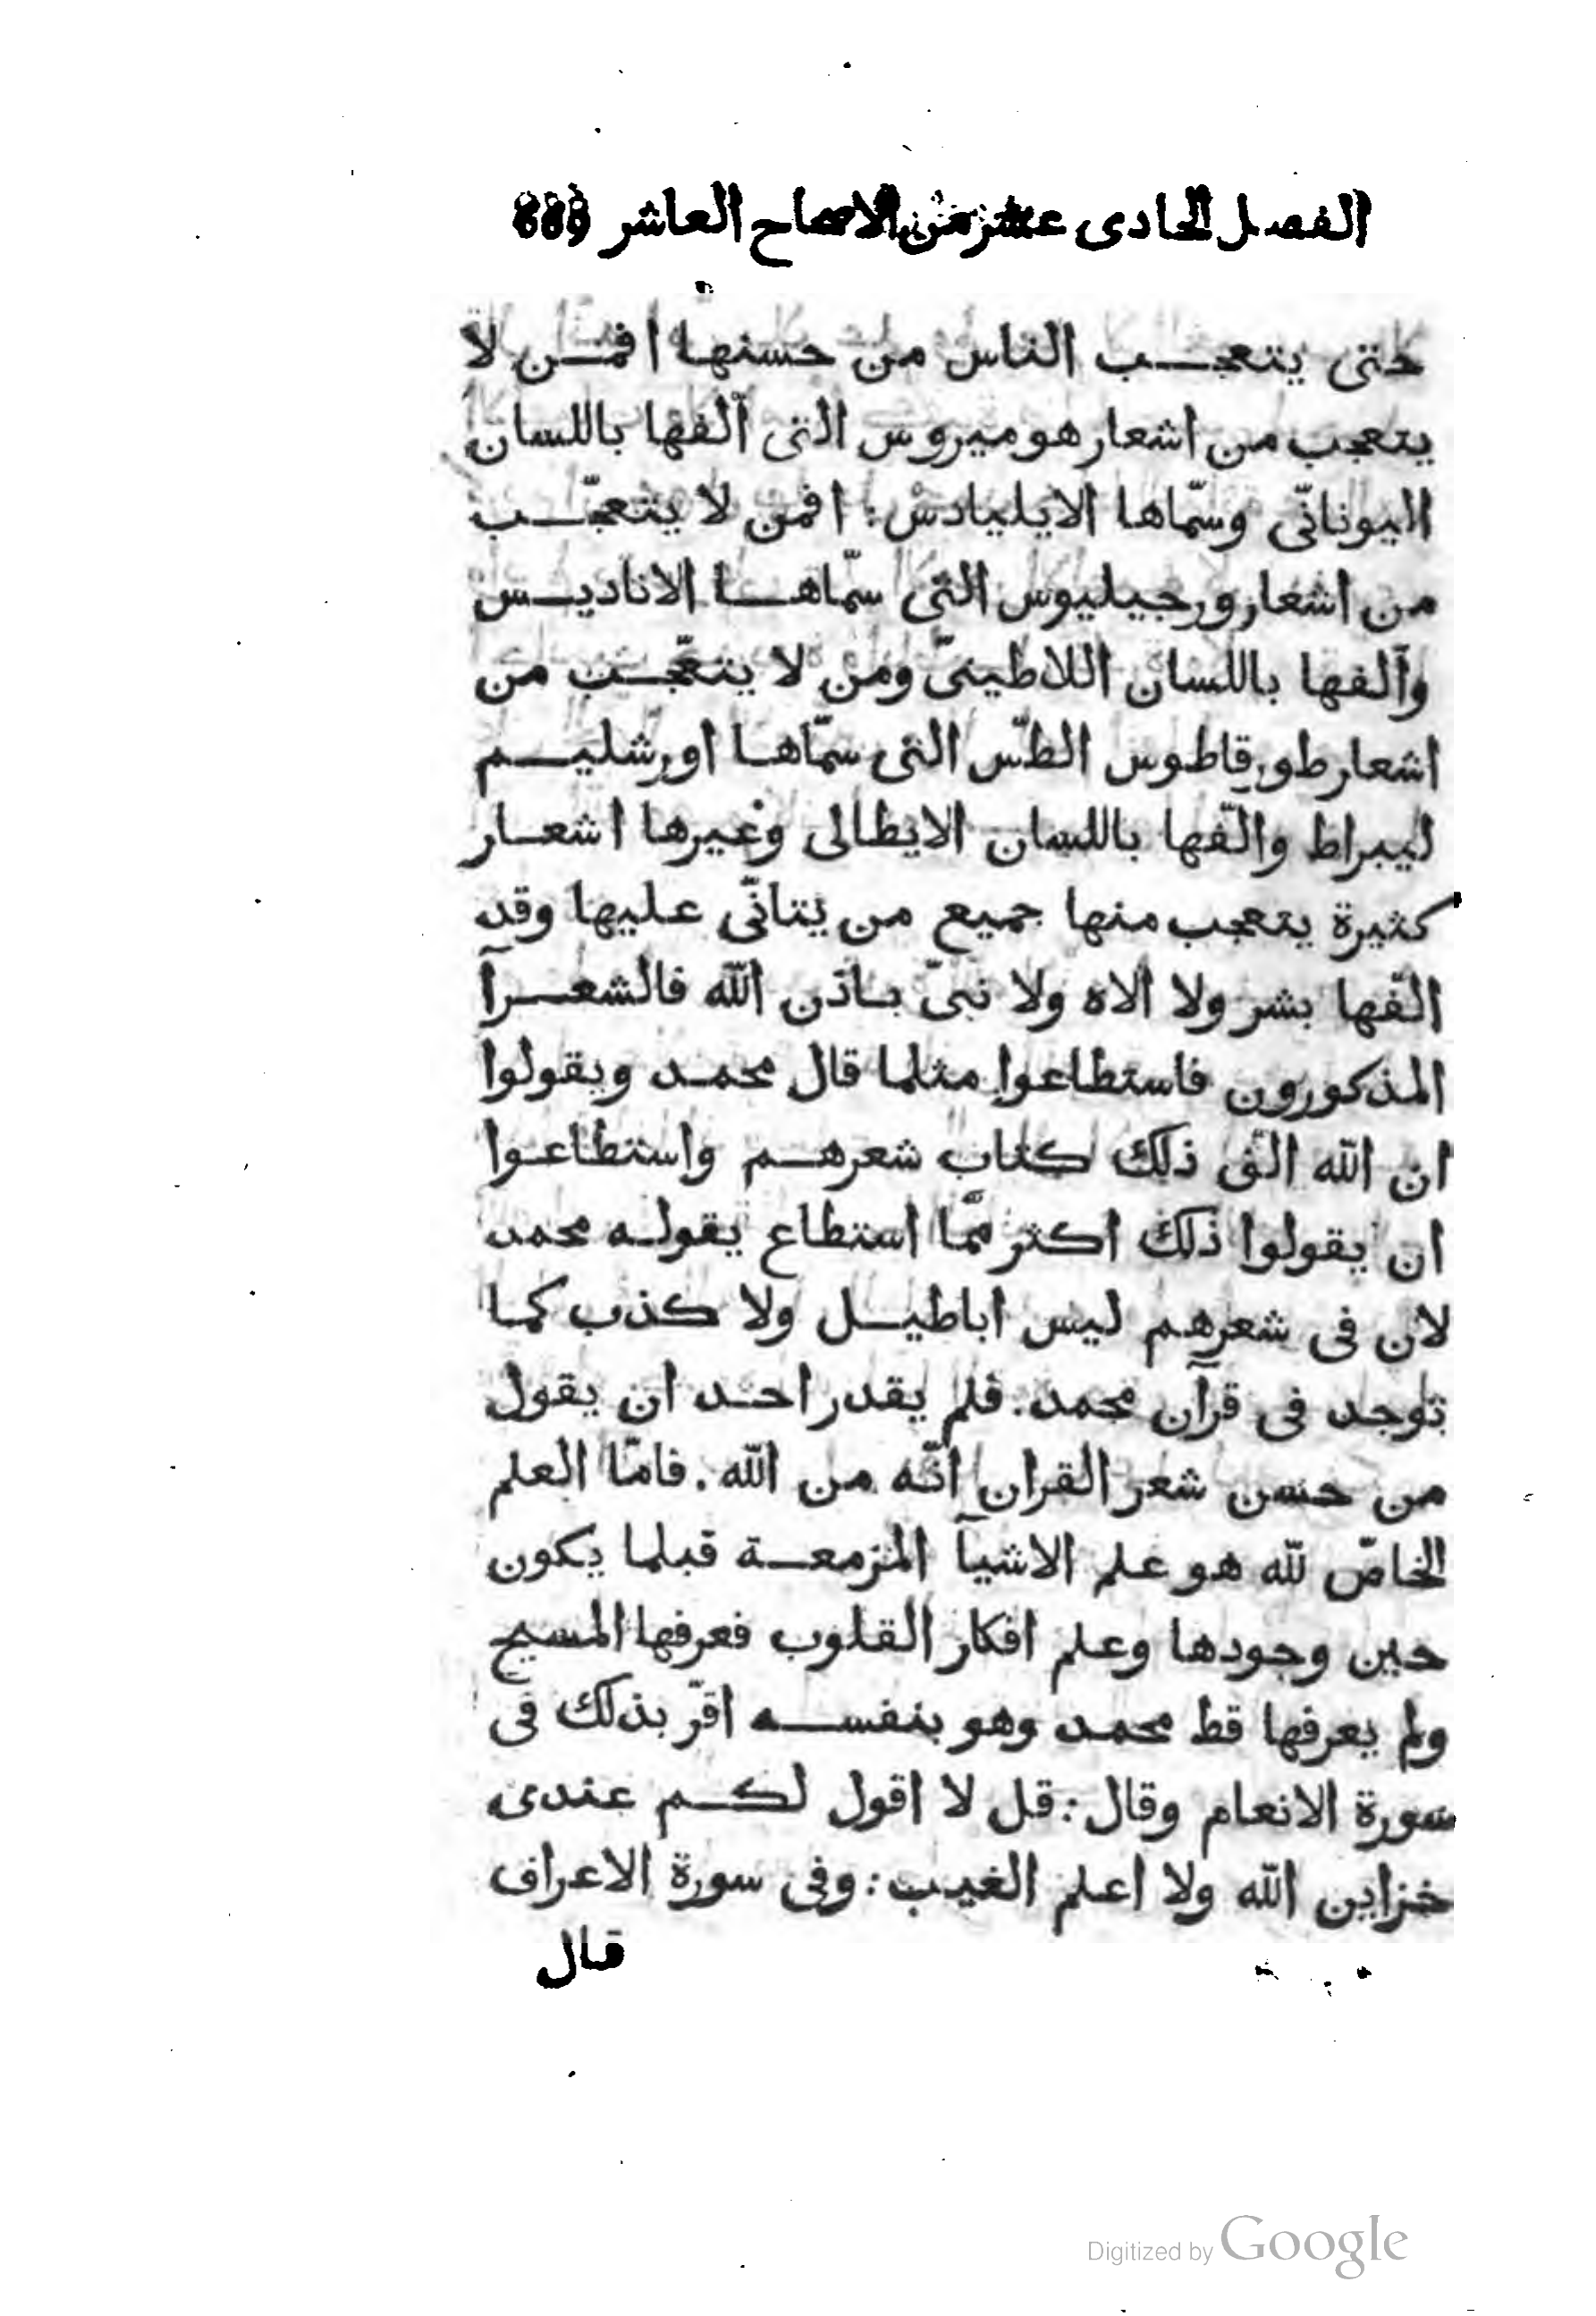 الفصل الحادى عشر من الاصحاح العاشر
حتى يتعجب الناس من حسنها افمن لا
يتعجب من اشعار هوميروس التى آلفها باللسان
اليونانّى وسمّاها الايليادس: افمن لا يتعجّب
من اشعار ورجيليوس التى سمّاها الاناديس
وآلفها باللسان اللاطينىّ ومن لا يتعّجب من
اشعار طورقاطوس الطّس التى سمّاها اورشليم
ليبراط والّفها باللسان الايطالى وغيرها اشعار
كثيرة يتعجب منها جميع من يتانّى عليها وقد
الّفها بشر ولا الاه ولا نبىّ باذن الله فالشعرآ
المذكورون فاستطاعوا مثلما قال محمد ويقولوا
ان الله الّف ذلك كتاب شعرهم واستطاعوا
ان يقولوا ذلك اكثر ممّا استطاع يقوله محمد
لان فى شعرهم ليس اباطيل ولا كذب كما
توجد فى قرآن محمد. فلم يقدر احد ان يقول
من حسن شعر القران انّه من الله. فامّا العلم
الخاصّ لله هو علم الاشيآ المزمعة قبلما يكون
حين وجودها وعلم افكار القلوب فعرفها المسيح
ولم يعرفها قط محمد وهو بنفسه اقرّ بذلك فى
سورة الانعام وقال: قل لا اقول لكم عندى
خزاين الله ولا اعلم الغيب: وفى سورة الاعراف
قال
Digitized by Google